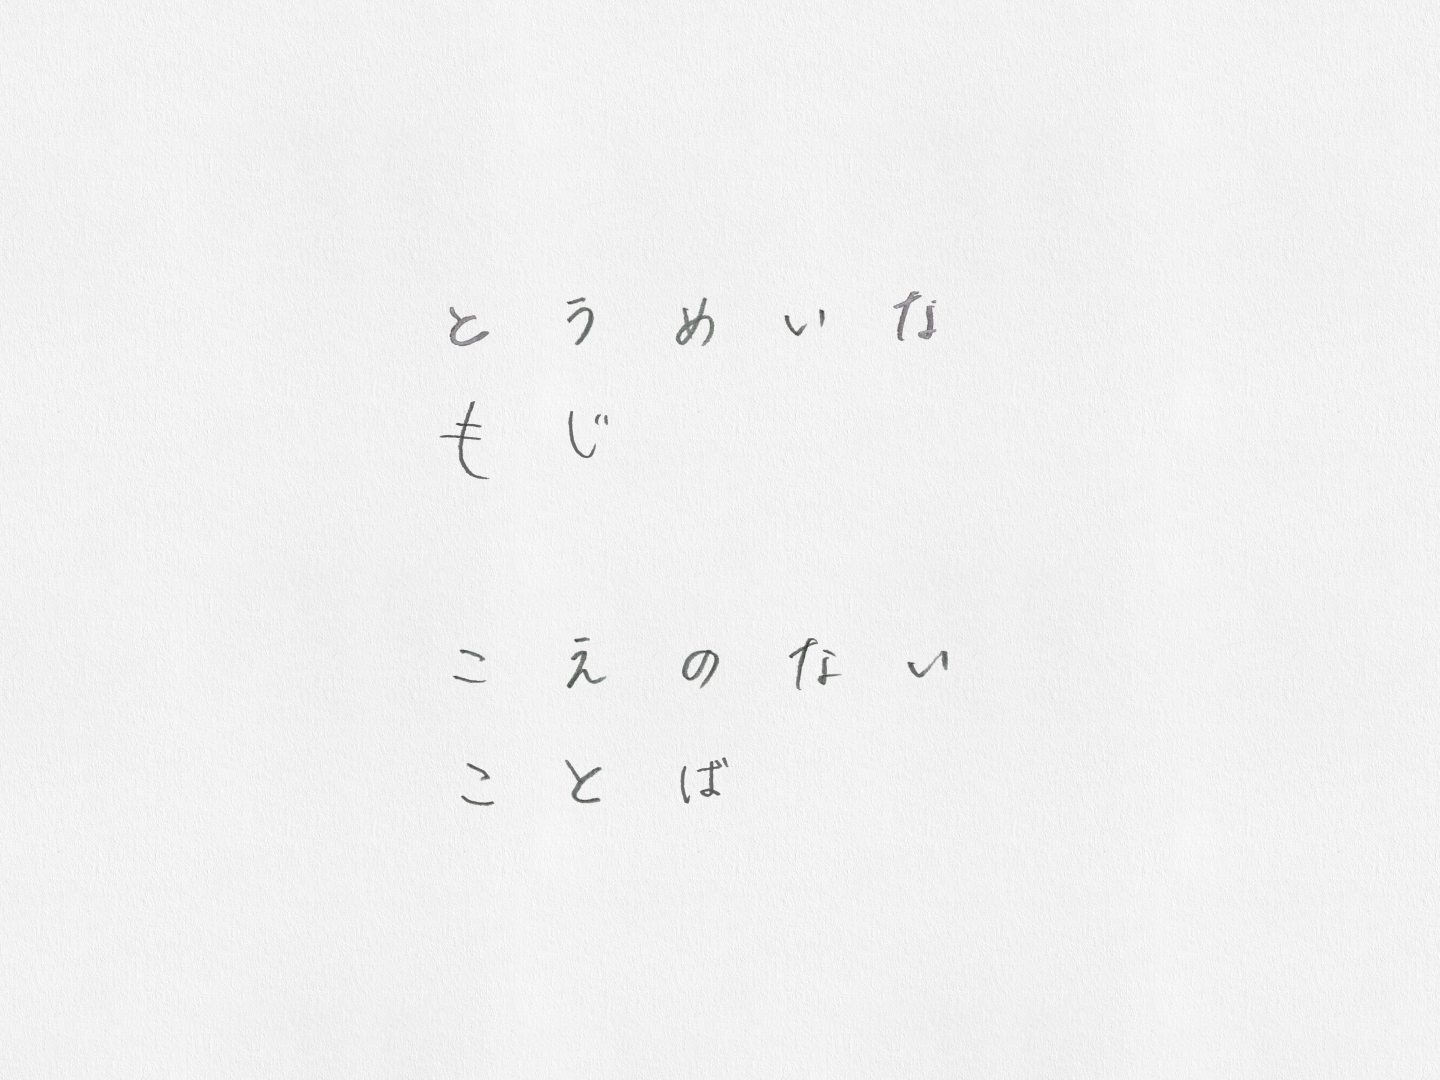 とうめいな
もじ
こえのない
ことば